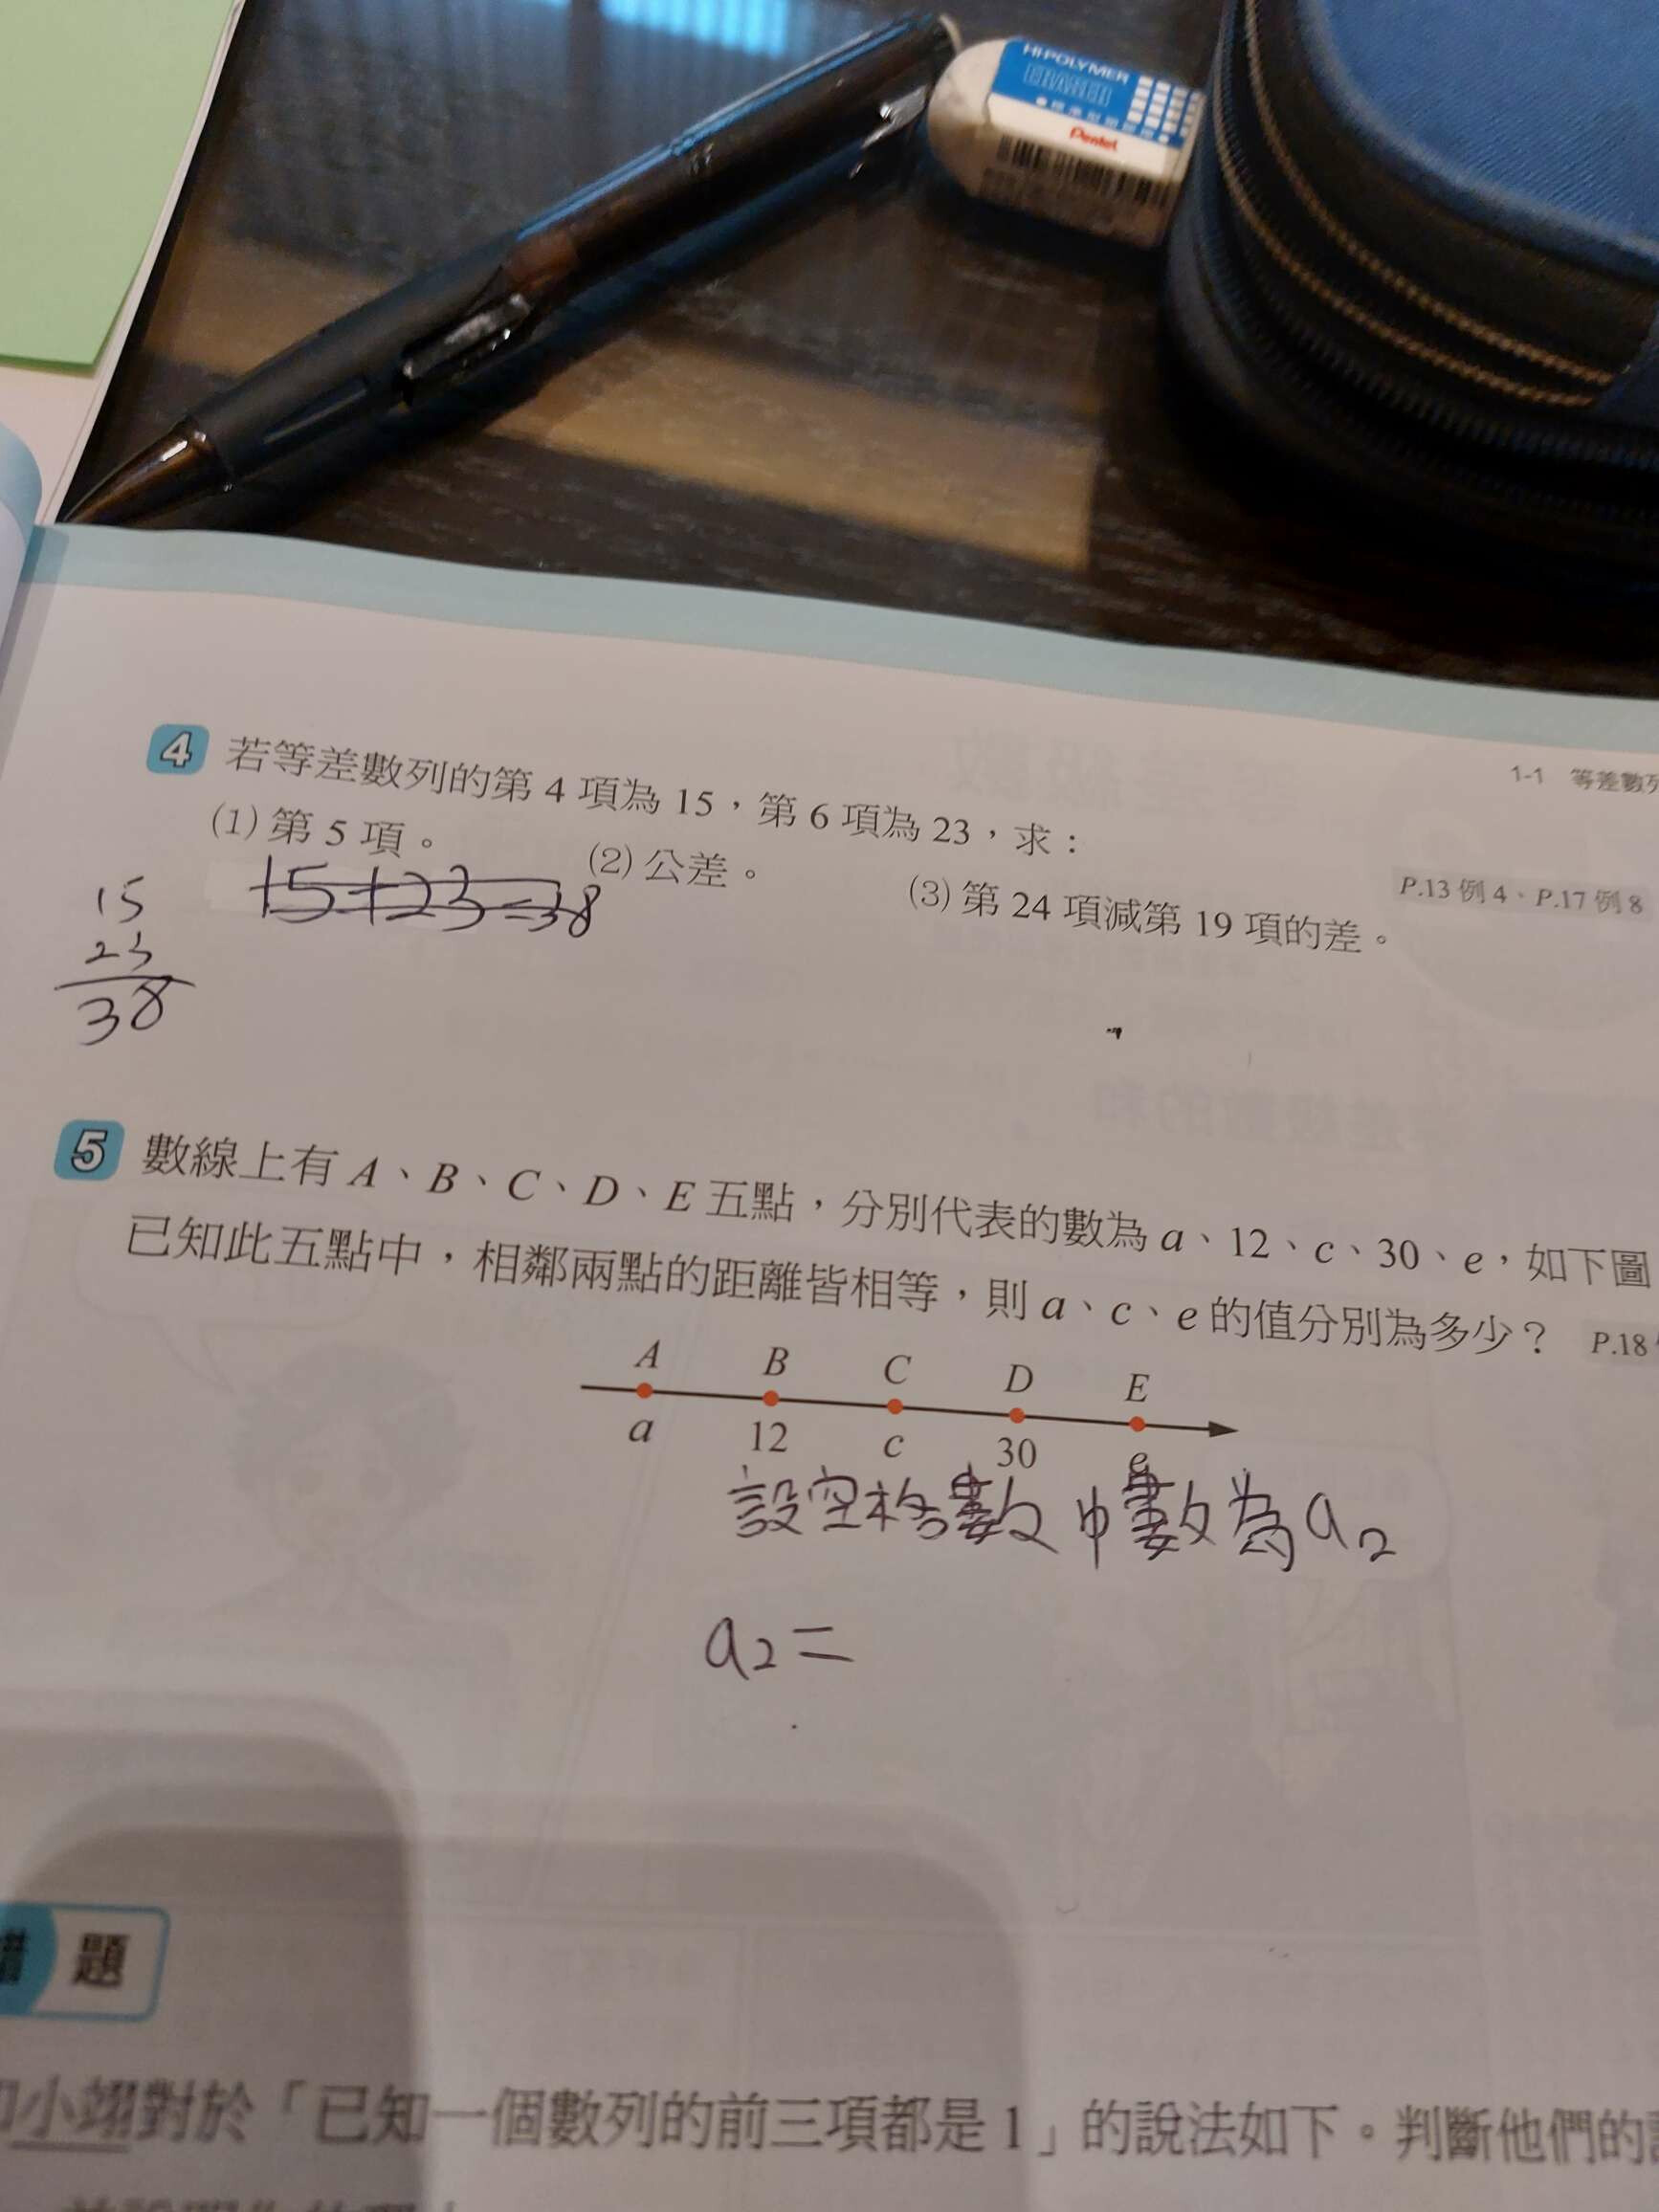 HI-POLYMER
ERASER
Pentel
1-1 等差數列
4 若等差數列的第 4 項為 15，第 6 項為 23，求：
P.13 例 4、P.17 例 8
(1) 第 5 項。 (2) 公差。 (3) 第 24 項減第 19 項的差。
15+23=38
15
23
38
5 數線上有 A、B、C、D、E 五點，分別代表的數為 a、12、c、30、e，如下圖
已知此五點中，相鄰兩點的距離皆相等，則 a、c、e 的值分別為多少？ P.18
A B C D E
a 12 c 30 e
設空格數中數為a₂
a₂=
題
小翊對於「已知一個數列的前三項都是 1」的說法如下。判斷他們的